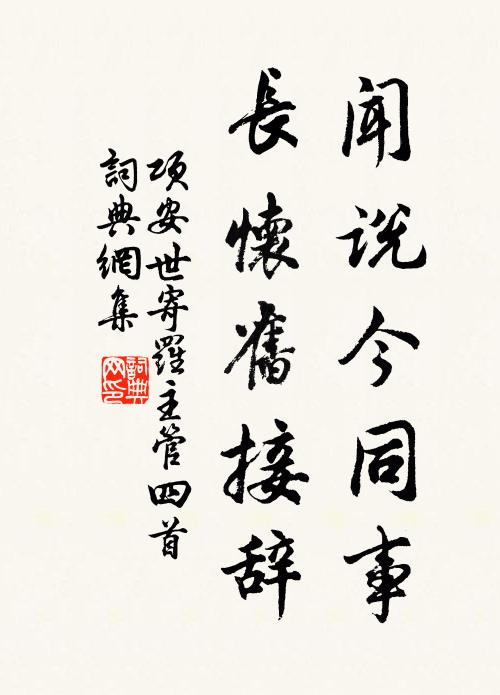 闻说今同事
長懷舊接辞
项安世寄羅主管四首
詞典網集
詞典
网印